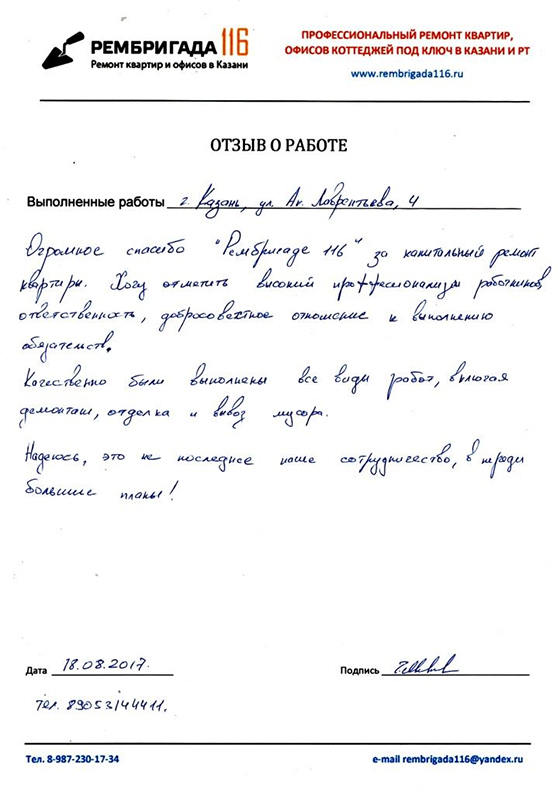 РЕМБРИГАДА 116
Ремонт квартир и офисов в Казани
ПРОФЕССИОНАЛЬНЫЙ РЕМОНТ КВАРТИР,
ОФИСОВ КОТТЕДЖЕЙ ПОД КЛЮЧ В КАЗАНИ И РТ
www.rembrigada116.ru
ОТЗЫВ О РАБОТЕ
Выполненные работы г. Казань, ул. Ак. Лаврентьева, 4
Огромное спасибо "Рембригаде 116" за капитальный ремонт
квартиры. Хочу отметить высокий профессионализм работников,
ответственность, добросовестное отношение к выполнению
обязательств.
Качественно были выполнены все виды работ, включая
демонтаж, отделка и вывоз мусора.
Надеюсь, это не последнее наше сотрудничество, в
большие планы!
Дата 18.08.2017.
Подпись
тел. 89053144411.
Тел. 8-987-230-17-34
e-mail rembrigada116@yandex.ru